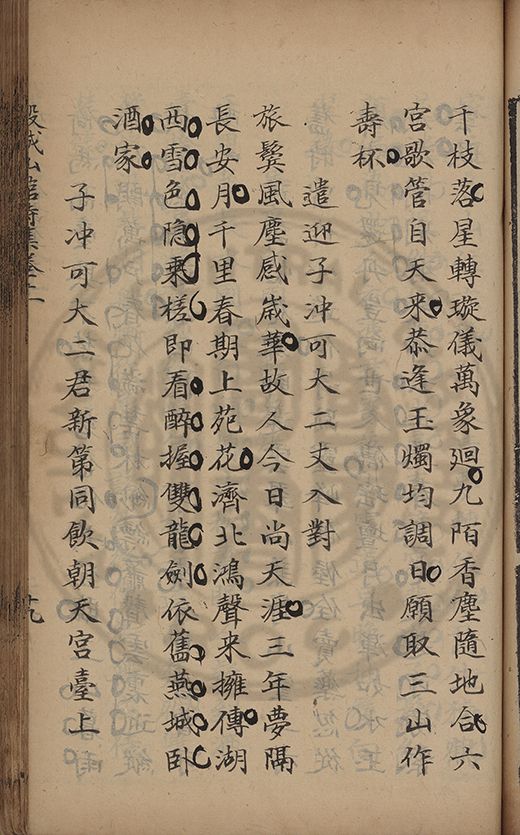 千枝落星轉璇儀萬象廻九陌香塵隨地合六
宮歌管自天來恭逢玉燭均調日願取三山作
壽杯
遣迎子冲可大二丈入對
旅鬓風塵感歲華故人今日尚天涯三年夢隔
長安月千里春期上苑花濟北鴻聲来擁傳湖
西雪色隐乗槎即看醉握雙龍劍依舊燕城卧
酒家
子冲可大二君新第同飲朝天宮臺上
榖城山館詩集卷十一
十九